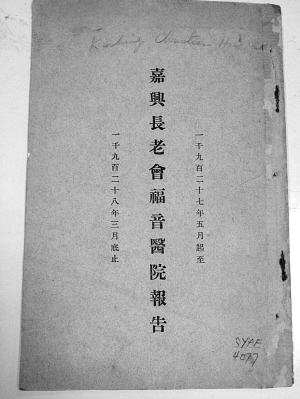 Kashing Christian Hospital
一千九百二十七年五月起至
嘉興長老會福音醫院報告
一千九百二十八年三月底止
SYPE
4077